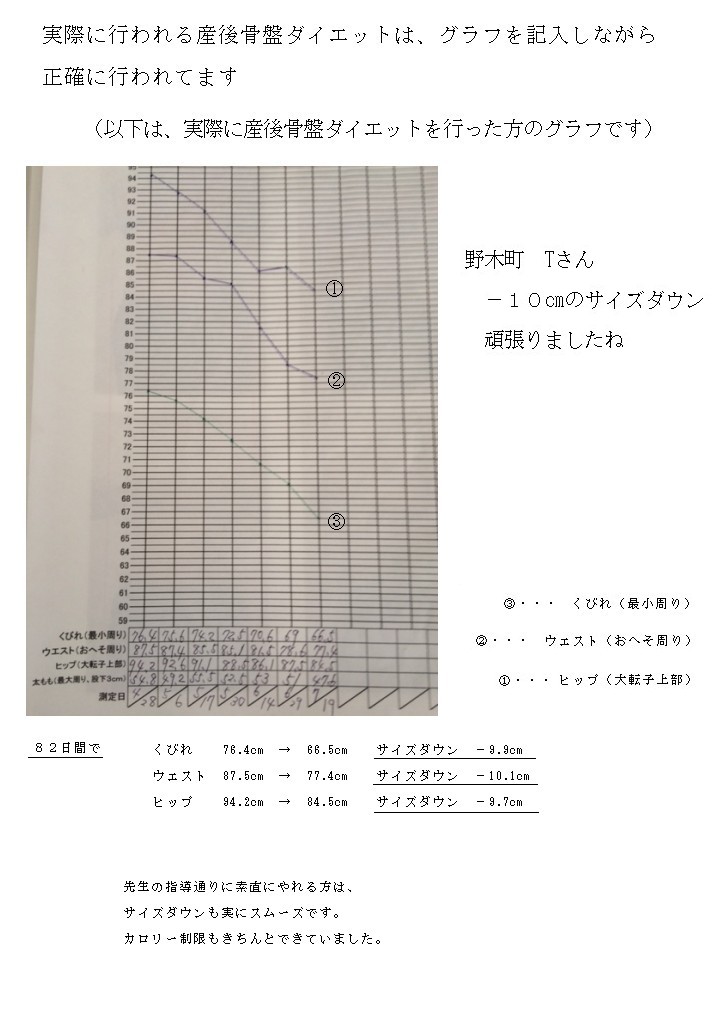 実際に行われる産後骨盤ダイエットは、グラフを記入しながら
正確に行われてます
（以下は、実際に産後骨盤ダイエットを行った方のグラフです）
94
93
92
91
90
89
88
87
86
85
84
83
82
81
80
79
78
77
76
75
74
73
72
71
70
69
68
67
66
65
64
63
62
61
60
59
①
②
③
野木町　Tさん
－１０㎝のサイズダウン
頑張りましたね
くびれ(最小周り) 76.4 75.6 74.2 72.5 70.6 69 66.5
ウエスト(おへそ周り) 87.5 87.4 85.5 85.1 81.5 78.6 77.4
ヒップ(大転子上部) 94.2 92.6 91.1 88.5 86.1 84.5
太もも(最大周り、股下3cm) 54.8 49.2 52.5 53 51 47.6
測定日 4/28 5/6 5/17 5/30 6/14 6/29 7/19
③・・・　くびれ（最小周り）
②・・・　ウェスト（おへそ周り）
①・・・ ヒップ（大転子上部）
８２日間で
くびれ　76.4cm　→　66.5cm　サイズダウン　－9.9cm
ウェスト　87.5cm　→　77.4cm　サイズダウン　－10.1cm
ヒップ　94.2cm　→　84.5cm　サイズダウン　－9.7cm
先生の指導通りに素直にやれる方は、
サイズダウンも実にスムーズです。
カロリー制限もきちんとできていました。